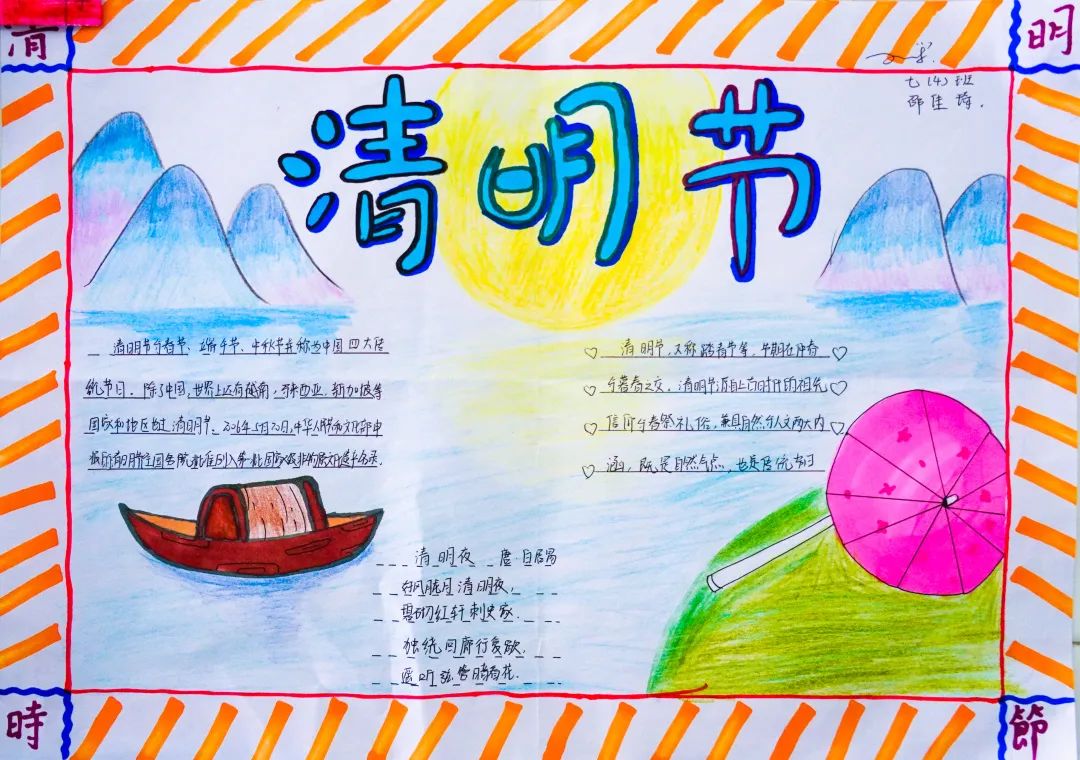 清
明
七(4)班
邵佳琦.
清明节
清明节与春节、端午节、中秋节并称为中国四大传
统节日。除了中国,世界上还有越南,马来西亚,新加坡等
国家和地区也过清明节。2006年5月20日,中华人民共和文化部申
报的清明节经国务院批准列入第一批国家级非物质文化遗产名录.
清明节,又称踏青节等,节期在仲春
与暮春之交,清明节源自上古时代的祖先
信仰与春祭礼俗,兼具自然与人文两大内
涵,既是自然节气点,也是传统节日
清明夜 唐·白居易
好风胧月清明夜,
碧砌红轩刺史家.
独绕回廊行复歇.
遥听弦管暗看花.
時
節